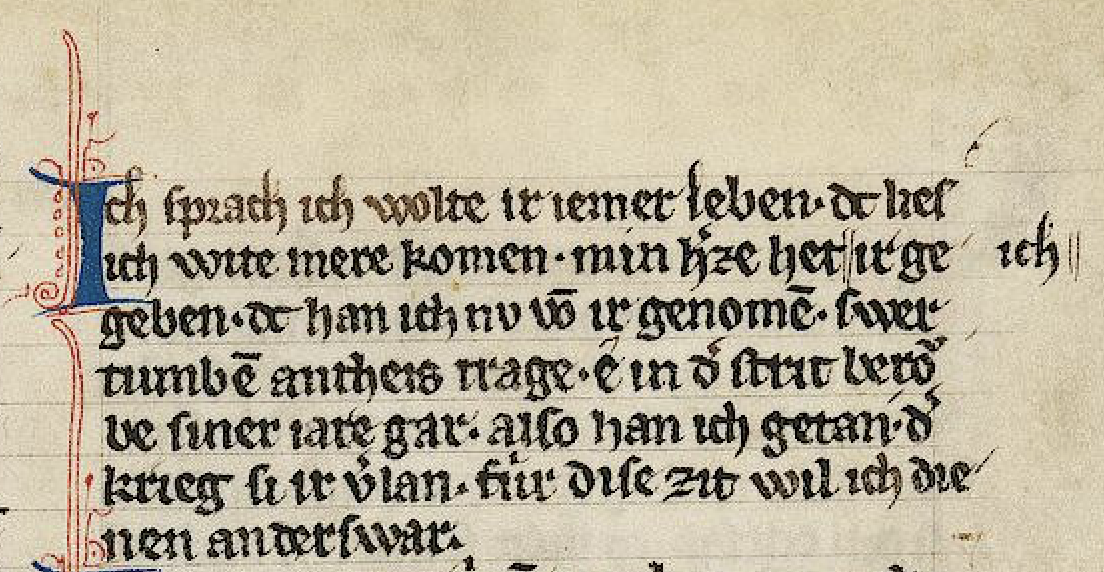 Ich sprach ich wolte ir iemer leben· dc lies
ich wite mere komen· min hˀze het ir ge ich
geben· dc han ich nv vō ir genomē· swer
tumbē antheis trage· ê in dˀ strit berŏ
be siner iare gar· also han ich getan· dˀ
krieg si ir vˀlan· fúr dise zit wil ich die
nen anderswar·